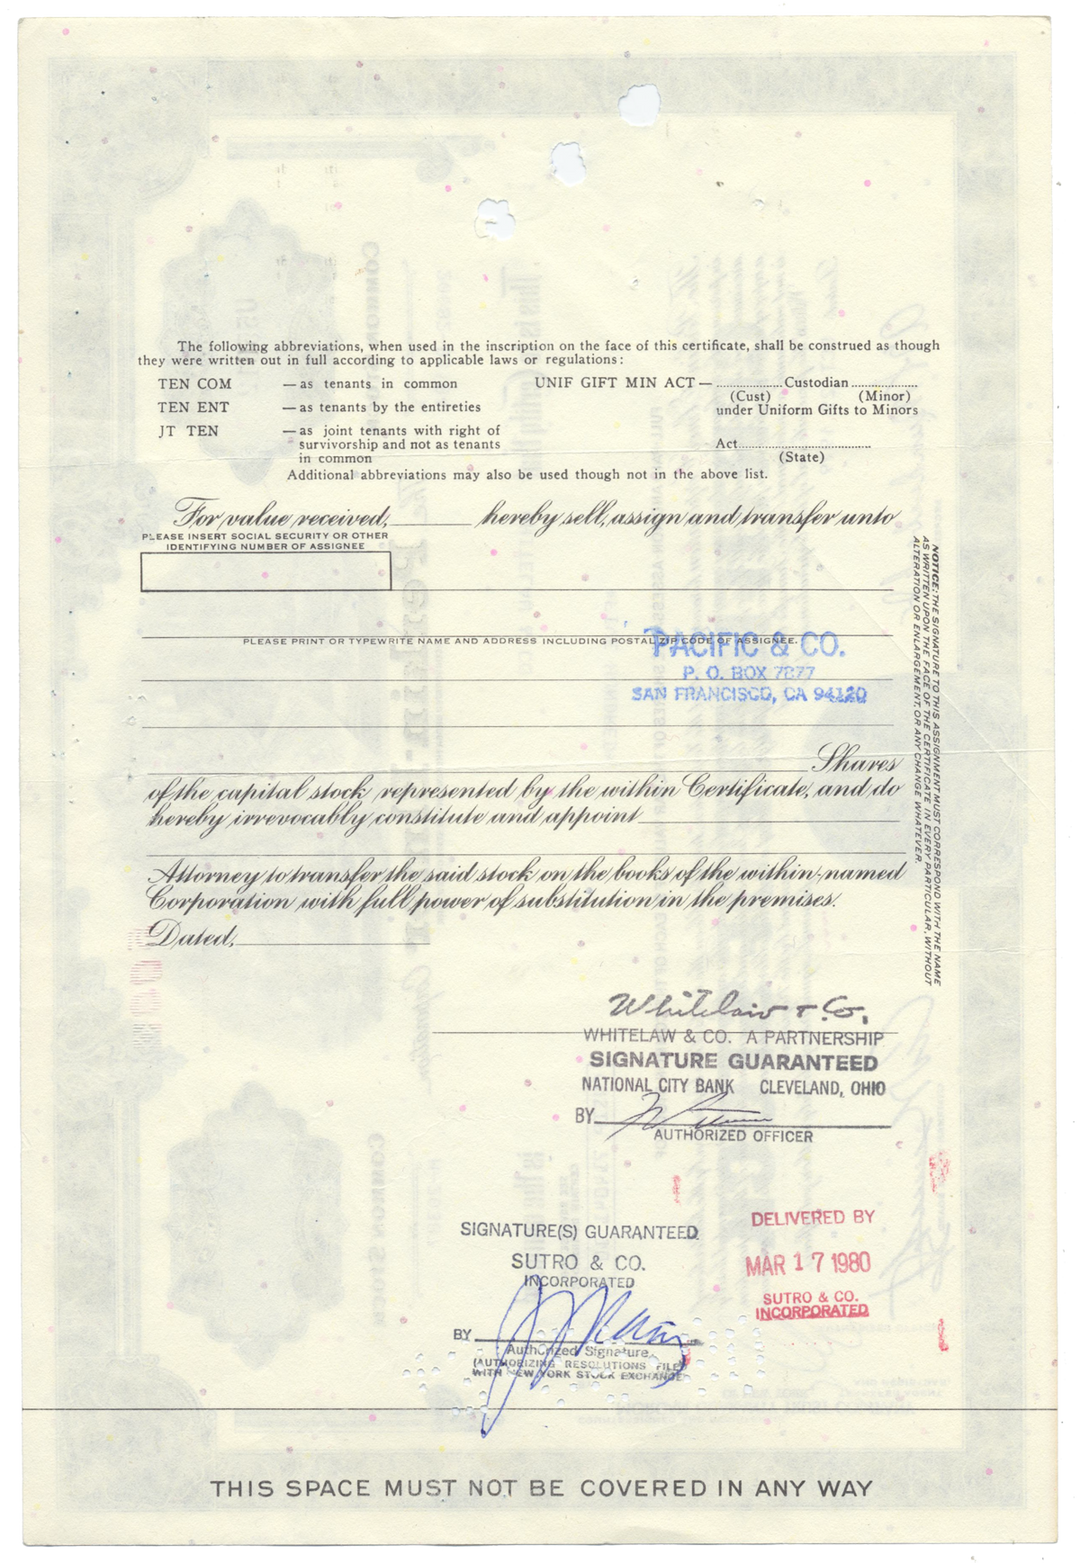 The following abbreviations, when used in the inscription on the face of this certificate, shall be construed as though
they were written out in full according to applicable laws or regulations:
TEN COM — as tenants in common
TEN ENT — as tenants by the entireties
JT TEN — as joint tenants with right of
survivorship and not as tenants
in common
UNIF GIFT MIN ACT — .................. Custodian ..................
(Cust) (Minor)
under Uniform Gifts to Minors
Act....................................
(State)
Additional abbreviations may also be used though not in the above list.
For value received, ________ hereby sell, assign and transfer unto
PLEASE INSERT SOCIAL SECURITY OR OTHER
IDENTIFYING NUMBER OF ASSIGNEE
PLEASE PRINT OR TYPEWRITE NAME AND ADDRESS INCLUDING POSTAL ZIP CODE OF ASSIGNEE.
PACIFIC & CO.
P. O. BOX 7877
SAN FRANCISCO, CA 94120
Shares
of the capital stock represented by the within Certificate, and do
hereby irrevocably constitute and appoint
Attorney to transfer the said stock on the books of the within-named
Corporation with full power of substitution in the premises.
Dated,
NOTICE: THE SIGNATURE TO THIS ASSIGNMENT MUST CORRESPOND WITH THE NAME
AS WRITTEN UPON THE FACE OF THE CERTIFICATE IN EVERY PARTICULAR, WITHOUT
ALTERATION OR ENLARGEMENT, OR ANY CHANGE WHATEVER.
Whitelaw & Co.
WHITELAW & CO. A PARTNERSHIP
SIGNATURE GUARANTEED
NATIONAL CITY BANK CLEVELAND, OHIO
BY
AUTHORIZED OFFICER
SIGNATURE(S) GUARANTEED
SUTRO & CO.
INCORPORATED
BY
Authorized Signature
(AUTHORIZING RESOLUTIONS FILED
WITH NEW YORK STOCK EXCHANGE
DELIVERED BY
MAR 17 1980
SUTRO & CO.
INCORPORATED
THIS SPACE MUST NOT BE COVERED IN ANY WAY